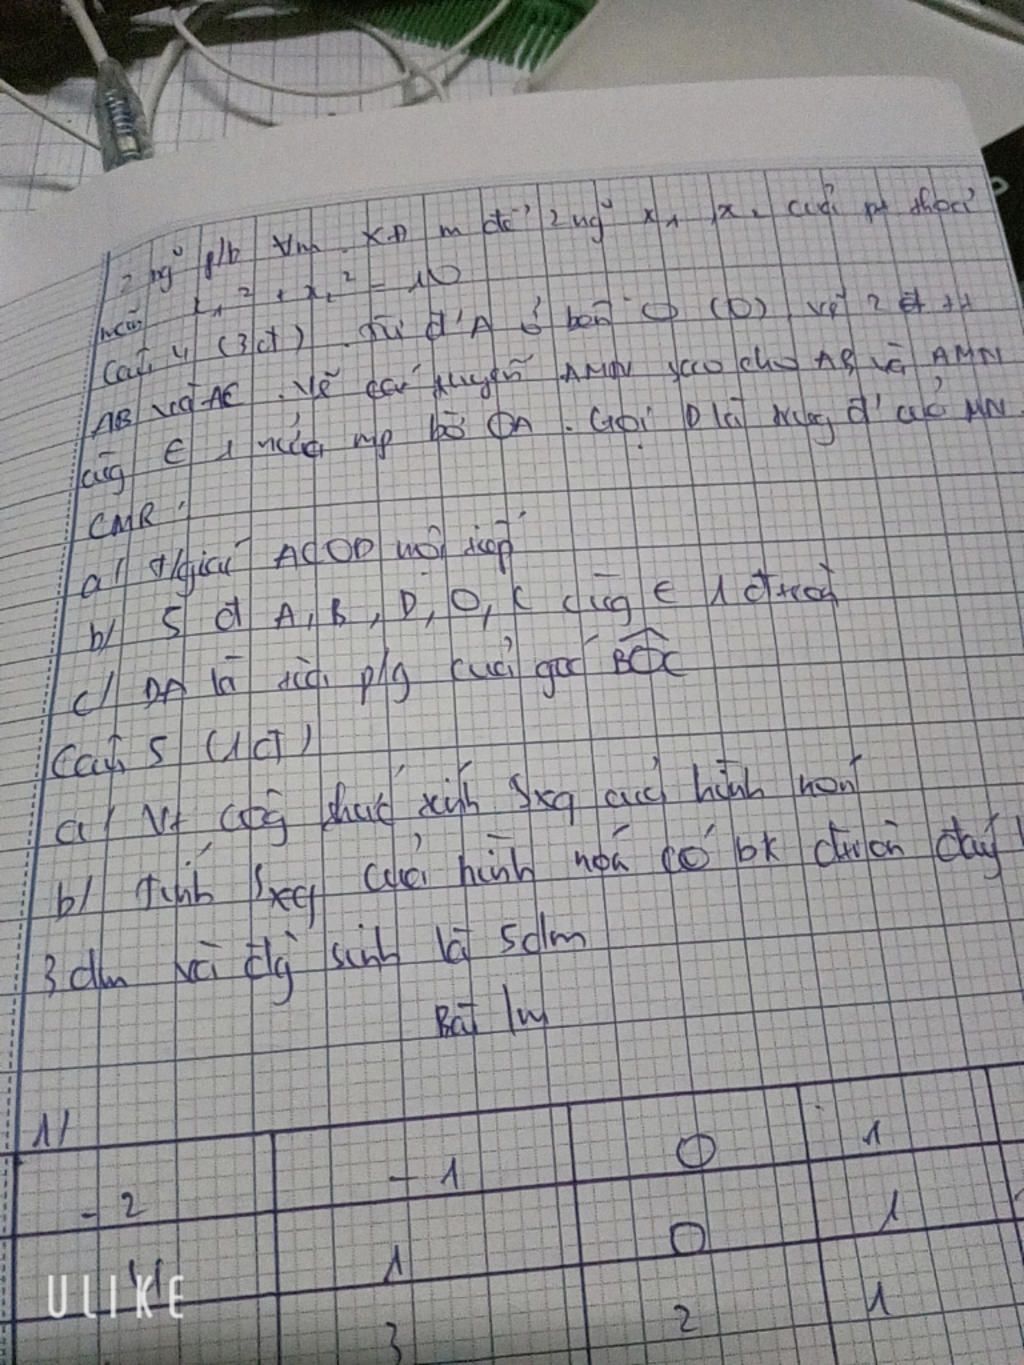 2 ng° p/b ∀m. XĐ m để 2 ng° x₁, x₂ của pt thoả
mãn x₁² + x₂² = 10
Câu 4 (3đ). Từ đ' A ở (O) vẽ 2
AB và AC. Vẽ cát tuyến AMN sao cho AB và AMN
cùng ∈ 1 nửa mp bờ OA. Gọi D là trung đ' của MN.
CMR:
a/ t/giác ACOD nội tiếp
b/ 5 đ A, B, D, O, C cùng ∈ 1 đtròn
c/ DA là tia p/g của góc BDC
Câu 5 (1đ)
a/ Vt công thức tính Sxq của hình nón
b/ tính Sxq của hình nón có bk đáy
3dm và đg sinh là 5dm
Bài lm
1/
-2 -1 0 1
4 1 0 1
3 2 1
ULIKE